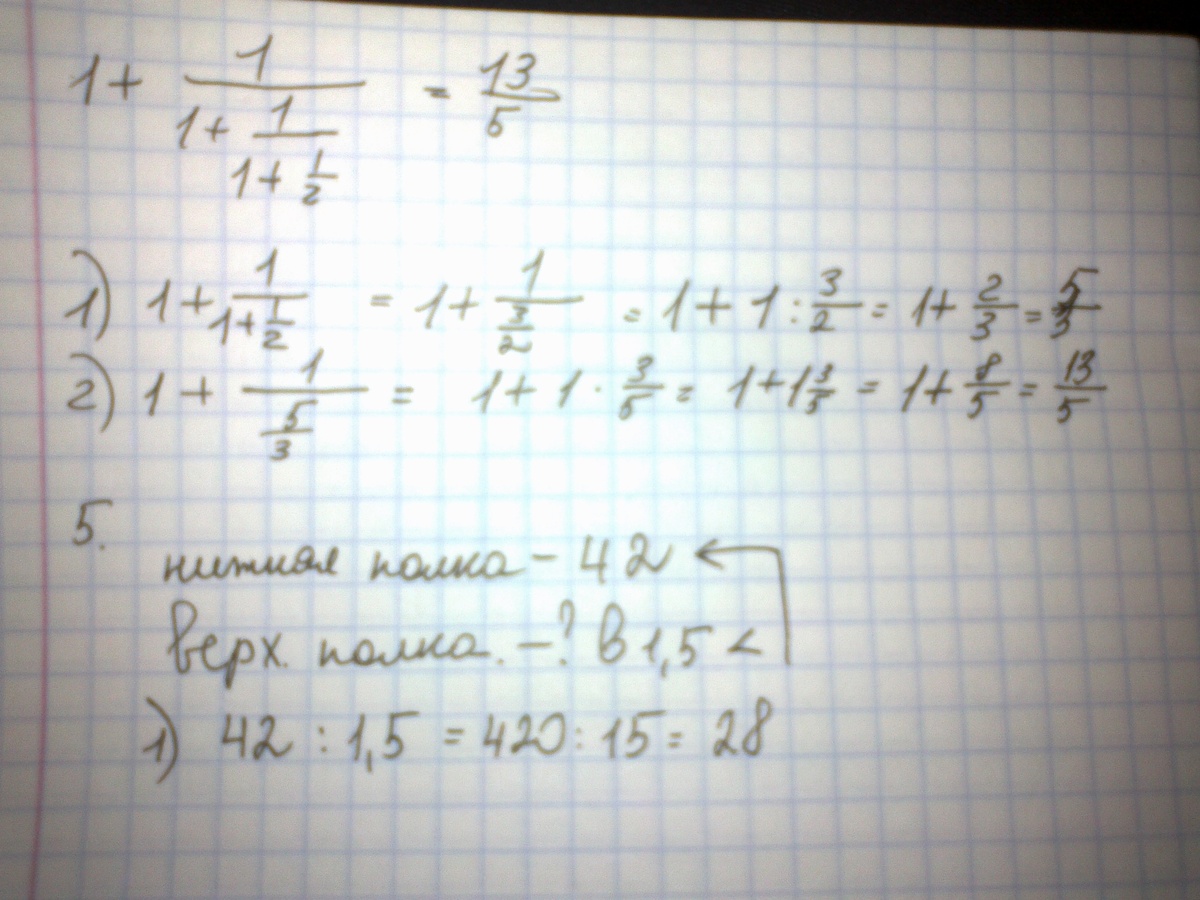 1 + 1/(1 + 1/(1 + 1/2)) = 13/5
1) 1 + 1/(1 + 1/2) = 1 + 1/(3/2) = 1 + 1 : 3/2 = 1 + 2/3 = 5/3
2) 1 + 1/(5/3) = 1 + 1 · 3/5 = 1 + 1 3/5 = 1 + 8/5 = 13/5
5.
нижняя полка – 42
верх. полка. – ? в 1,5 <
1) 42 : 1,5 = 420 : 15 = 28